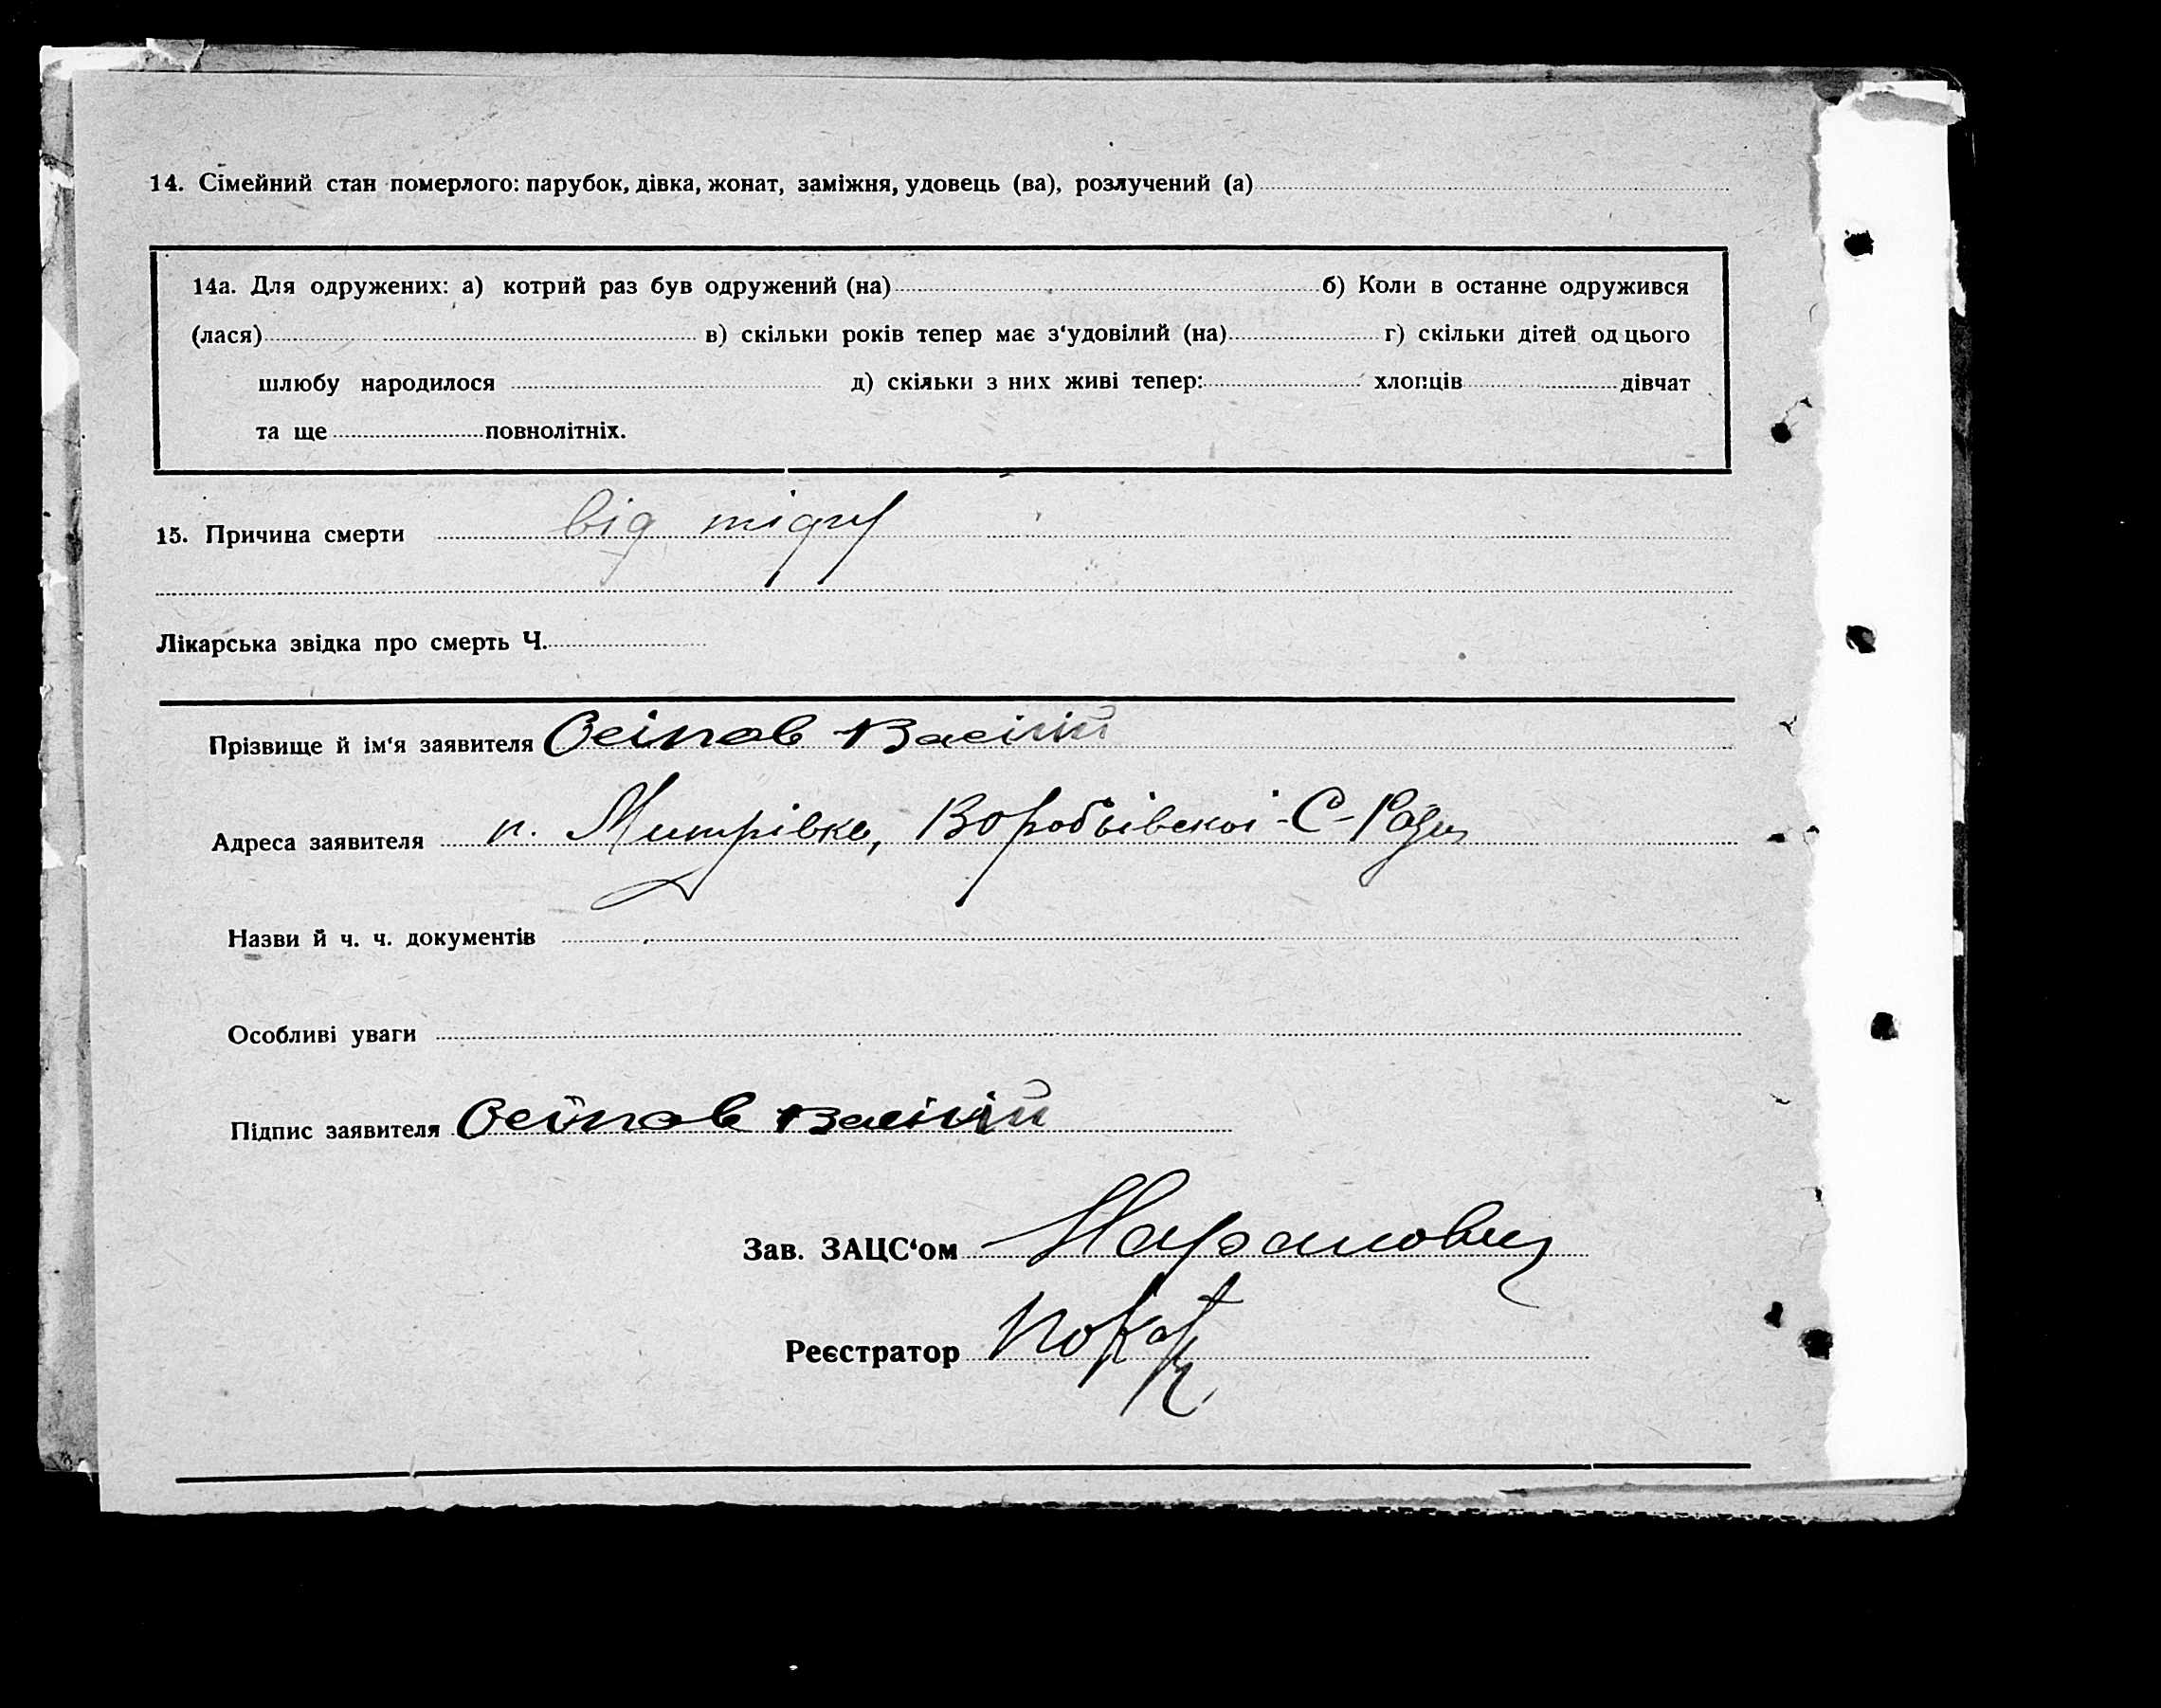 14. Сімейний стан померлого: парубок, дівка, жонат, заміжня, удовець (ва), розлучений (а)
14а. Для одружених: а) котрий раз був одружений (на) б) Коли в останне одружився
(лася) в) скільки років тепер має з‘удовілий (на) г) скільки дітей од цього
шлюбу народилося д) скільки з них живі тепер: хлопців дівчат
та ще повнолітніх.
15. Причина смерти від
Лікарська звідка про смерть Ч.
Прізвище й ім‘я заявителя Осіпов Васілій
Адреса заявителя п. Митрівка, Воробьівскоі С-Ради
Назви й ч. ч. документів
Особливі уваги
Підпис заявителя Осіпов Васілій
Зав. ЗАЦС‘ом
Реєстратор